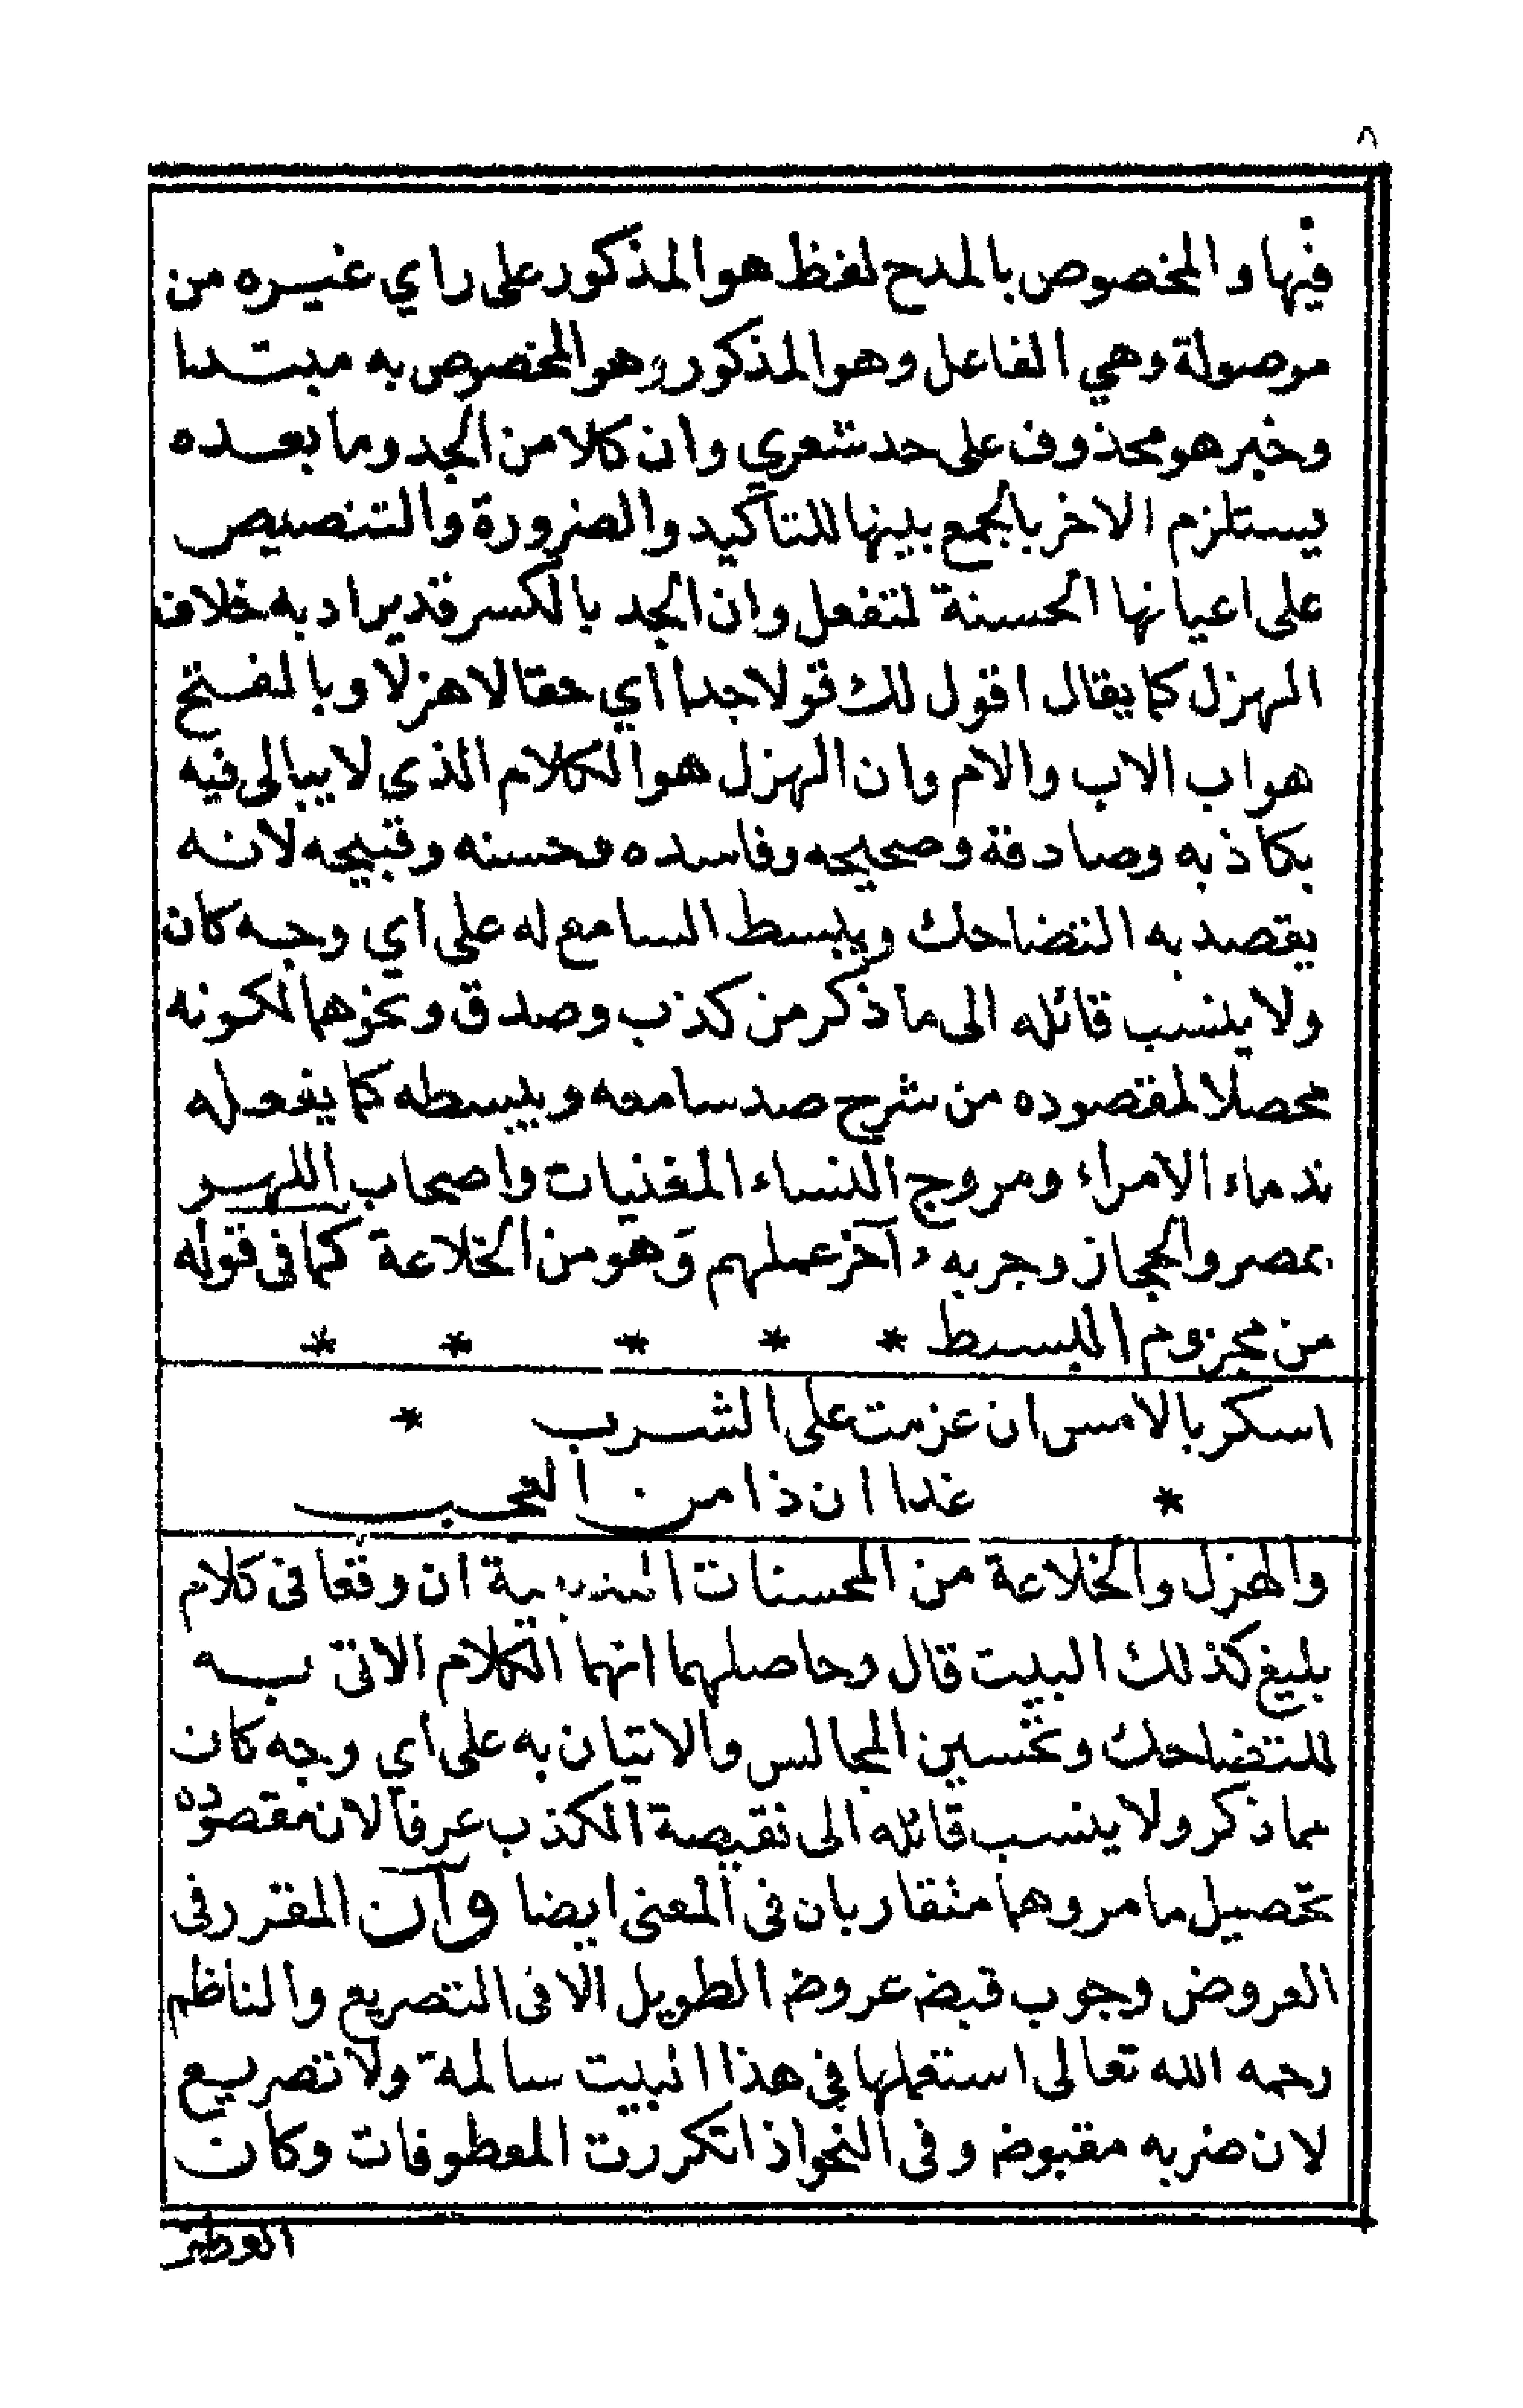 ٨
فيها والمخصوص بالمدح لفظ هو المذكور على راي غيره من
موصولة وهي الفاعل وهو المذكور وهو المخصوص به مبتدا
وخبر هو محذوف على حد شعري وان كلا من الجد وما بعده
يستلزم الاخر بالجمع بينها للتأكيد والضرورة والتنصيص
على اعيانها الحسنة لتفعل وان الجد بالكسر قد يراد به خلاف
الهزل كما يقال اقول لك قولا جدا اي حقا لا هزلا وبالفتح
هو اب الاب والام وان الهزل هو الكلام الذي لا يبالى فيه
بكاذبه وصادقة وصحيحه وفاسده وحسنه وقبيحه لانه
يقصد به التضاحك ويبسط السامع له على اي وجه كان
ولا ينسب قائله الى ما ذكر من كذب وصدق ونحوهما لكونه
محصلا لمقصوده من شرح صدر سامعه ويبسطه كما يفعله
ندماء الامراء ومروج النساء المغنيات واصحاب اللهو
بمصر والحجاز وجربه آخر عملهم وهو من الخلاعة كما في قوله
من مجزوم البسيط * * * * *
اسكر بالامس ان عزمت على الشرب *
* غدا ان ذا من العجب
والهزل والخلاعة من المحسنات البديعية ان وقعا في كلام
بليغ كذلك البيت قال وحاصلهما انهما الكلام الاتى به
للتضاحك وتحسين المجالس والاتيان به على اي وجه كان
مما ذكر ولا ينسب قائله الى نقيصة الكذب عرفا لان مقصوده
تحصيل ما مر وهما متقاربان في المعنى ايضا وآن المقرر في
العروض وجوب قبض عروض الطويل الا في التصريع والناظم
رحمه الله تعالى استعملها في هذا البيت سالمة ولا تصريع
لان ضربه مقبوض وفي النحو اذا تكررت المعطوفات وكان
العطف